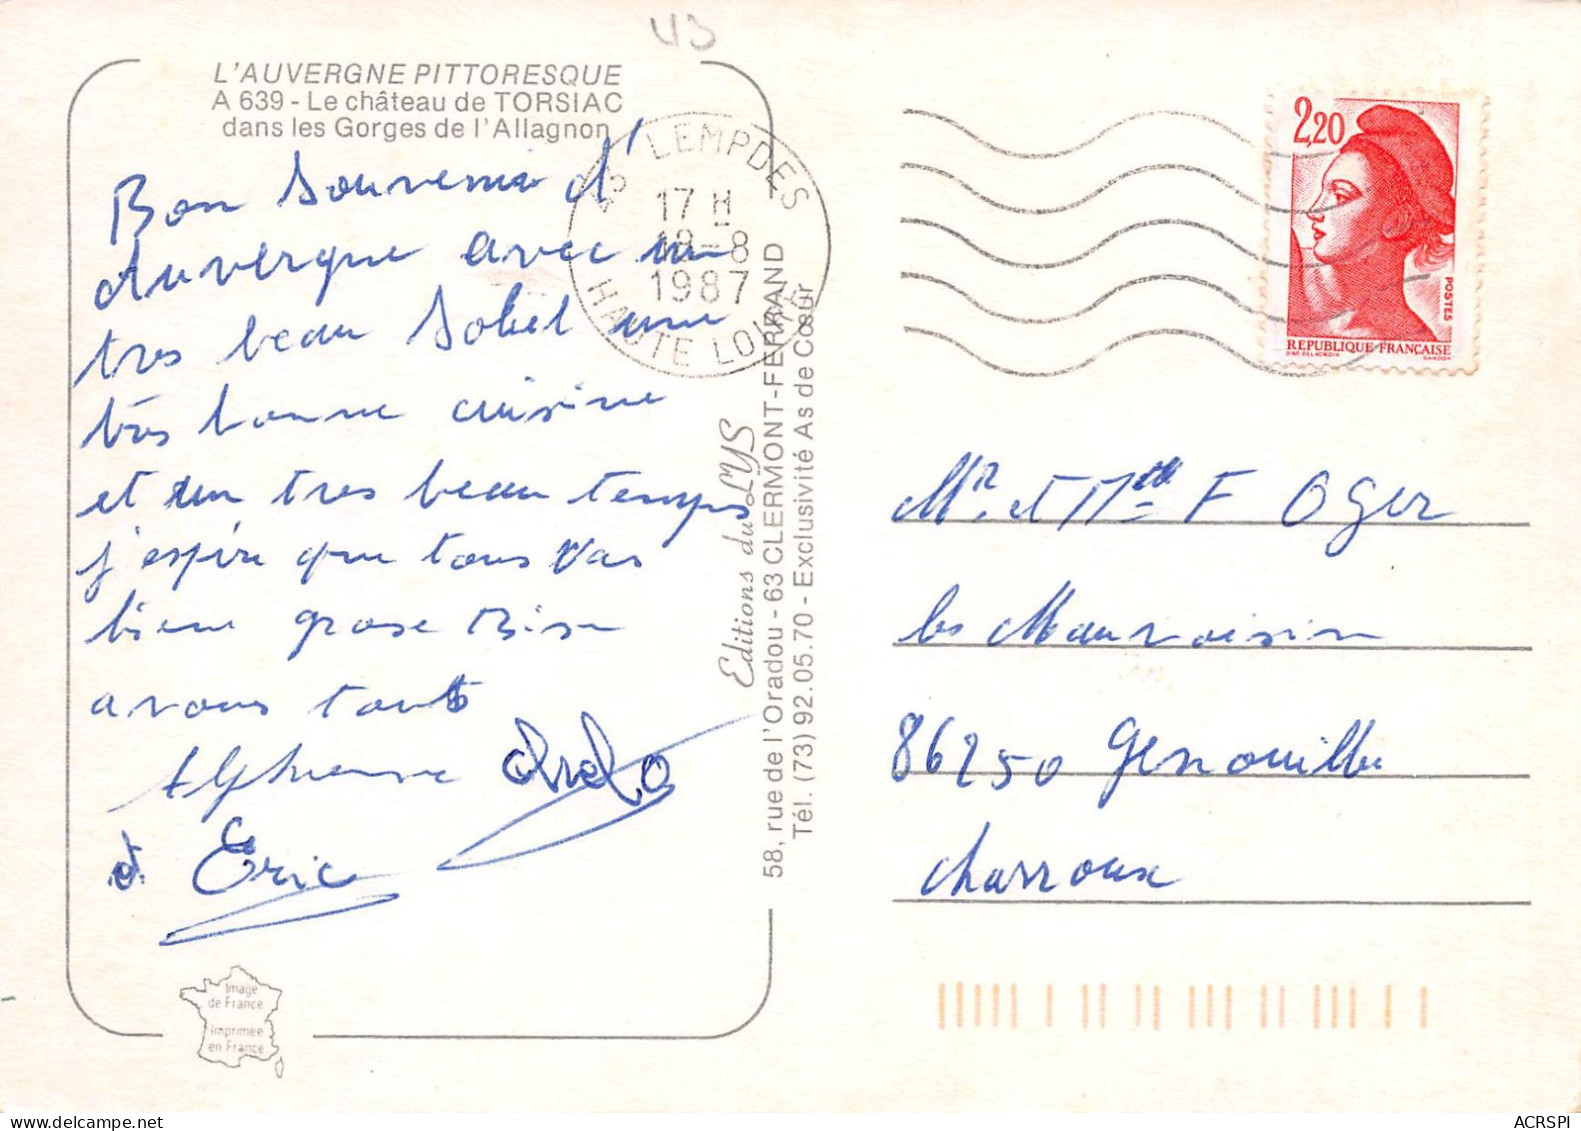 43
L'AUVERGNE PITTORESQUE
A 639 - Le château de TORSIAC
dans les Gorges de l'Allagnon
Bon Souvenir d'
Auvergne avec un
tres beau Soleil une
très bonne cuisine
et un tres beau temps
j'espère que tous vas
bien grose Bise
a vous tous
Alphonse
et Eric
Image
de France
Imprimée
en France
Editions du LYS
58, rue de l'Oradou - 63 CLERMONT-FERRAND
Tél. (73) 92.05.70 - Exclusivité As de Cœur
43 LEMPDES
17 H
18-8
1987
HAUTE LOIRE
2,20
POSTES
REPUBLIQUE FRANÇAISE
D'AP. DELACROIX GANDON
Mr. et Mme F Oger
les Mauvoisin
86250 Genouille
Charroux
ACRSPI